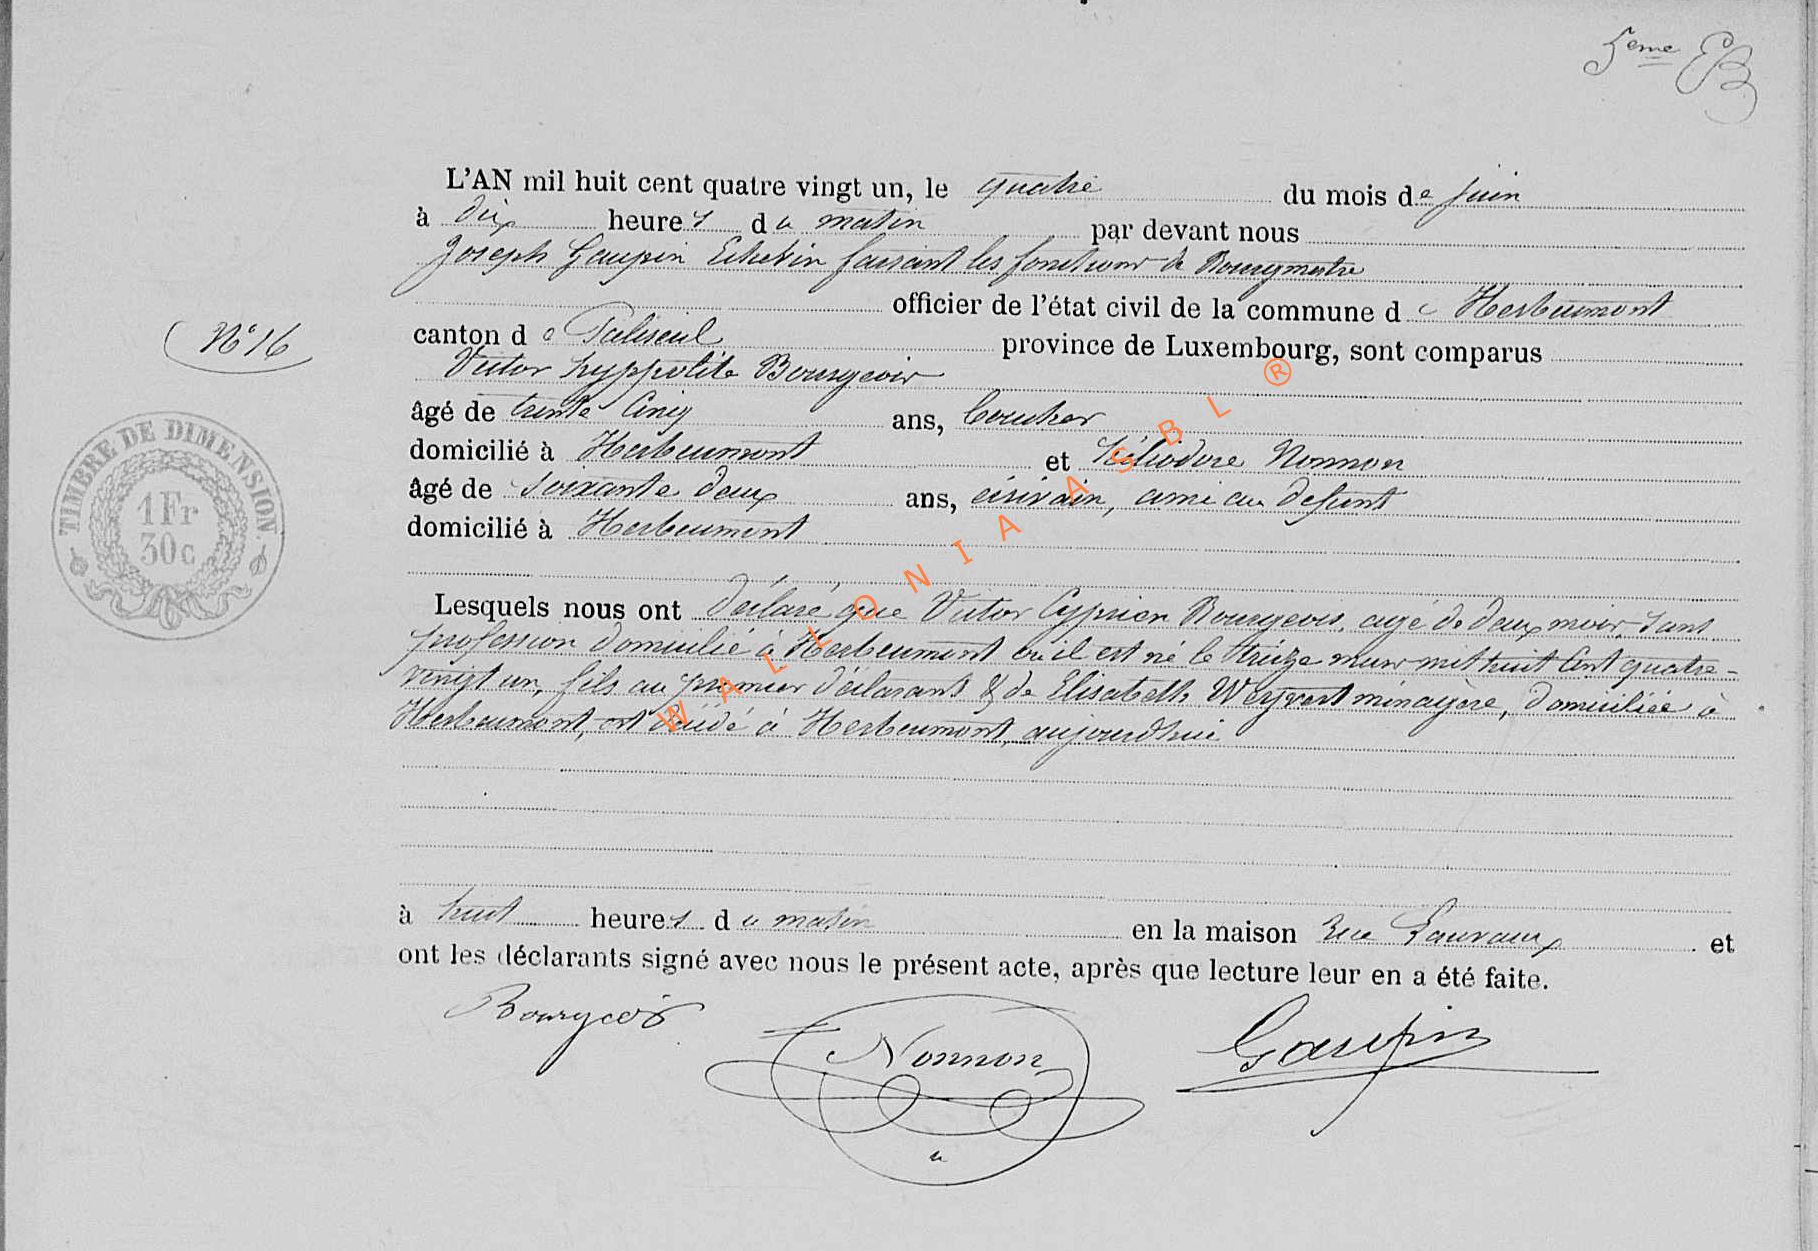 5eme EB
L'AN mil huit cent quatre vingt un, le quatre du mois de juin
à dix heures du matin par devant nous
Joseph Gaupin Echevin faisant les fonctions de Bourgmestre
officier de l'état civil de la commune d Herbeumont
N° 16
canton de Paliseul province de Luxembourg, sont comparus
Victor hyppolite Bourgeois
âgé de trente cinq ans,
domicilié à Herbeumont et Héliodore Nonnon
âgé de soixante deux ans, écrivain, ami au defunt
domicilié à Herbeumont
Lesquels nous ont déclaré que Victor Cyprien Bourgeois, agé de deux mois, sans
profession domicilié à Herbeumont où il est né le treize mars mil huit cent quatre-
vingt un, fils au premier déclarant & de Elisabeth ménagère, domiciliée à
Herbeumont, est décédé à Herbeumont, aujourd'hui
à huit heures du matin en la maison rue et
ont les déclarants signé avec nous le présent acte, après que lecture leur en a été faite.
Bourgeois
Nonnon
Gaupin
TIMBRE DE DIMENSION
1 Fr
30 c
WALLONIA ASBL ®